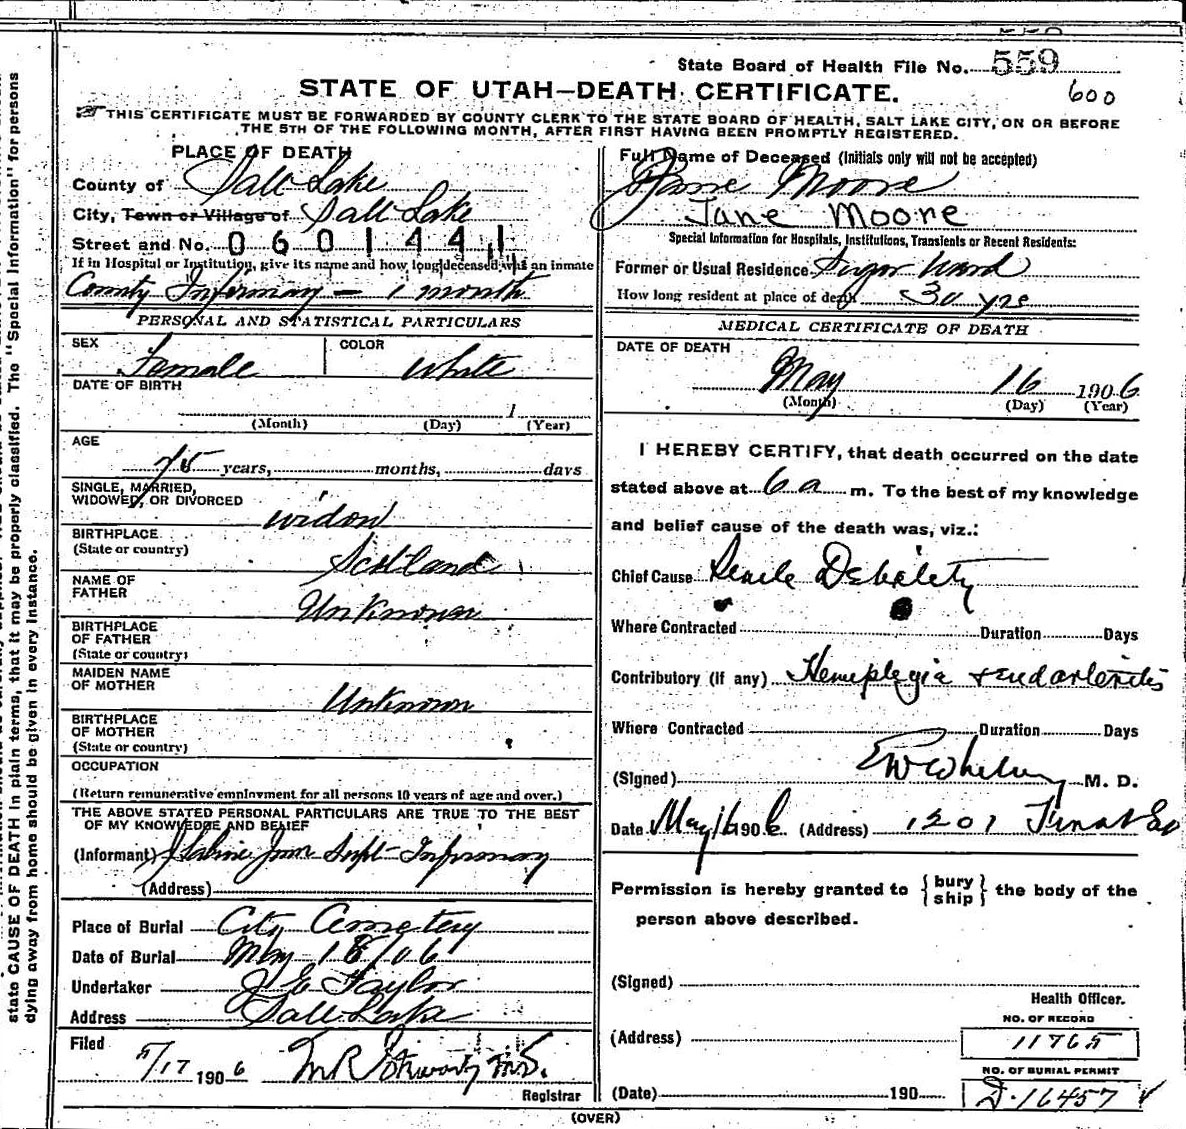 State Board of Health File No. 559
600
STATE OF UTAH—DEATH CERTIFICATE.
THIS CERTIFICATE MUST BE FORWARDED BY COUNTY CLERK TO THE STATE BOARD OF HEALTH, SALT LAKE CITY, ON OR BEFORE
THE 5TH OF THE FOLLOWING MONTH, AFTER FIRST HAVING BEEN PROMPTLY REGISTERED.
PLACE OF DEATH
County of Salt Lake
City, Town or Village of Salt Lake
Street and No. 0601441
If in Hospital or Institution, give its name and how long deceased was an inmate
County Infirmary — 1 month
PERSONAL AND STATISTICAL PARTICULARS
SEX Female
COLOR White
DATE OF BIRTH
1
(Month) (Day) (Year)
AGE
75 years, months, days
SINGLE, MARRIED,
WIDOWED, OR DIVORCED
Widow
BIRTHPLACE
(State or country)
Scotland
NAME OF
FATHER
Unknown
BIRTHPLACE
OF FATHER
(State or country)
MAIDEN NAME
OF MOTHER
Unknown
BIRTHPLACE
OF MOTHER
(State or country)
OCCUPATION
(Return remunerative employment for all persons 10 years of age and over.)
THE ABOVE STATED PERSONAL PARTICULARS ARE TRUE TO THE BEST
OF MY KNOWLEDGE AND BELIEF
(Informant) Supt Infirmary
(Address)
Place of Burial City Cemetery
Date of Burial May 18/06
Undertaker J E Taylor
Address Salt Lake
Filed
5/17 1906
Registrar
Full Name of Deceased (Initials only will not be accepted)
Jane Moore
Jane Moore
Special Information for Hospitals, Institutions, Transients or Recent Residents:
Former or Usual Residence Sugar Ward
How long resident at place of death 30 yrs
MEDICAL CERTIFICATE OF DEATH
DATE OF DEATH
May 16 1906
(Month) (Day) (Year)
I HEREBY CERTIFY, that death occurred on the date
stated above at 6 a m. To the best of my knowledge
and belief cause of the death was, viz.:
Chief Cause Senile Debility
Where Contracted Duration Days
Contributory (if any) Hemiplegia & endarteritis
Where Contracted Duration Days
(Signed) M. D.
Date May 16 1906 (Address) 1201
Permission is hereby granted to { bury ship } the body of the
person above described.
(Signed)
Health Officer.
(Address)
NO. OF RECORD
11765
NO. OF BURIAL PERMIT
D-16457
(Date) 190
(OVER)
state CAUSE OF DEATH in plain terms, that it may be properly classified. The "Special Information" for persons
dying away from home should be given in every instance.